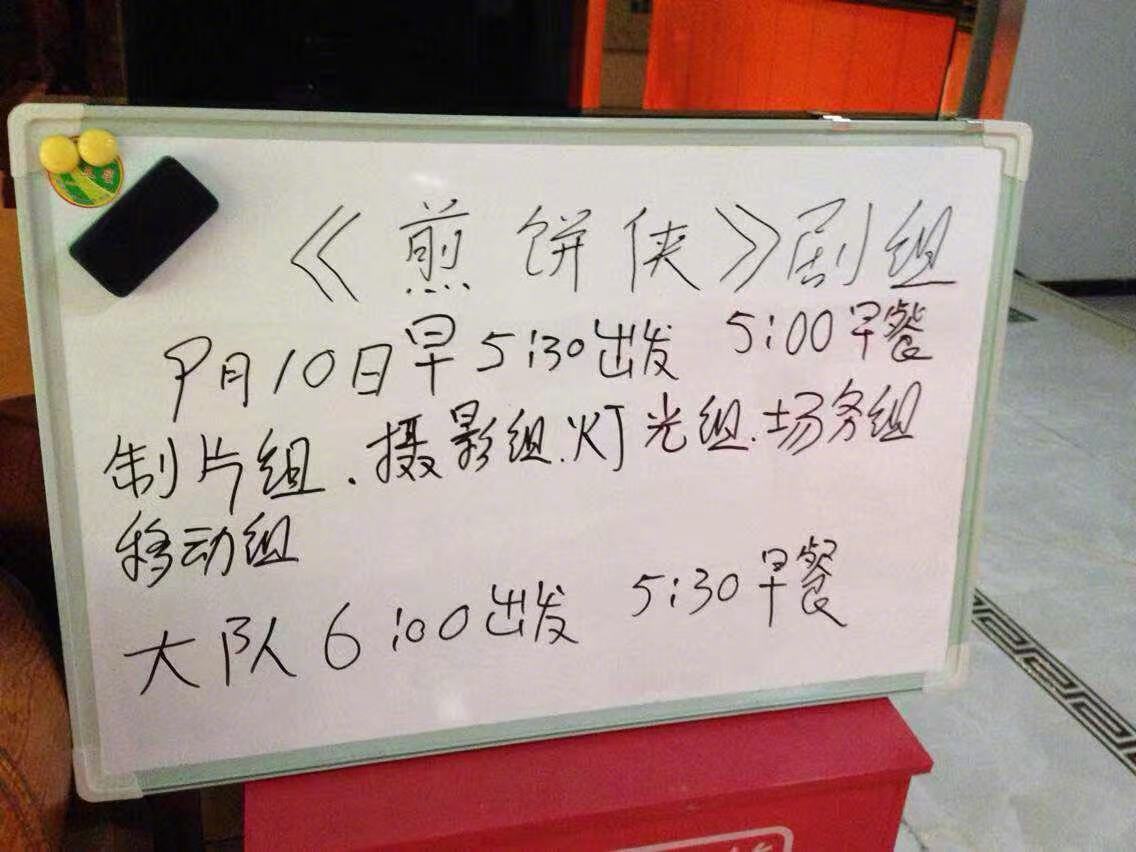 《煎饼侠》剧组
9月10日早5:30出发 5:00早餐
制片组、摄影组、灯光组、场务组
移动组
大队6:00出发 5:30早餐